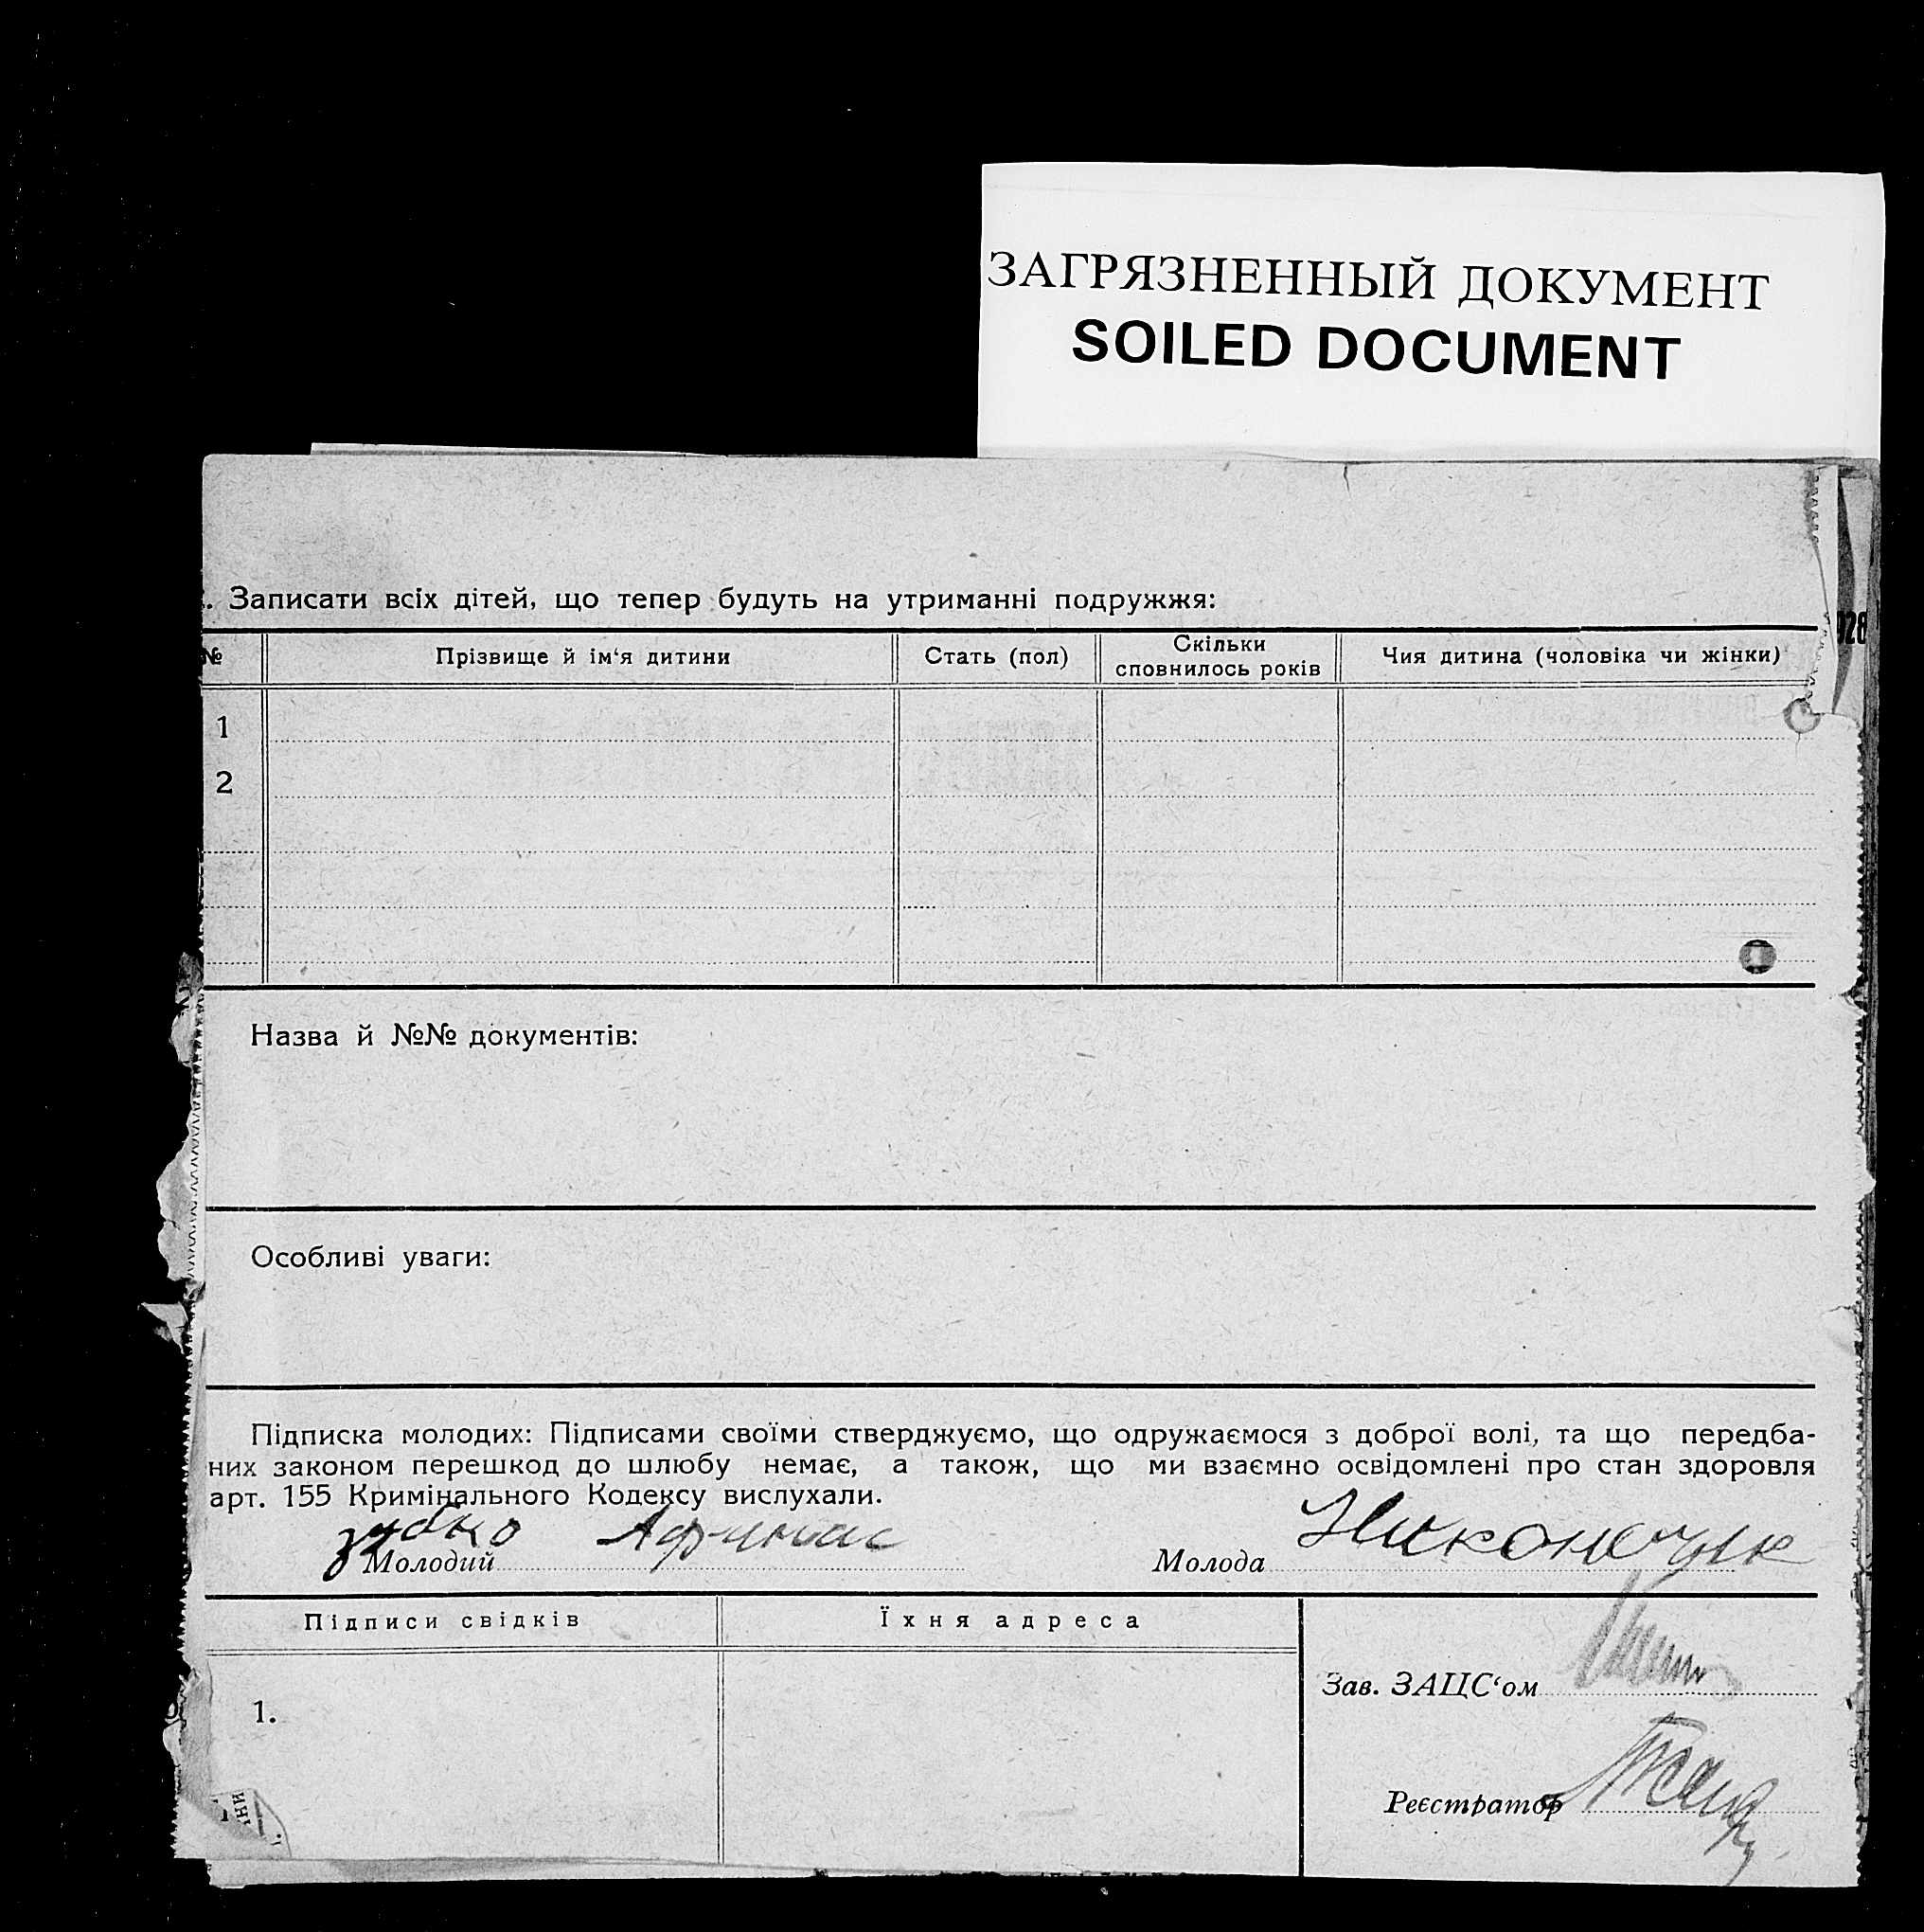 ЗАГРЯЗНЕННЫЙ ДОКУМЕНТ
SOILED DOCUMENT
. Записати всіх дітей, що тепер будуть на утриманні подружжя:
928
№ Прізвище й ім‘я дитини Стать (пол) Скільки сповнилось років Чия дитина (чоловіка чи жінки)
1
2
Назва й №№ документів:
Особливі уваги:
Підписка молодих: Підписами своїми стверджуємо, що одружаємося з доброї волі, та що передба-
них законом перешкод до шлюбу немає, а також, що ми взаємно освідомлені про стан здоровля
арт. 155 Кримінального Кодексу вислухали.
Молодий зубко Молода Никоночук
Підписи свідків Їхня адреса
Зав. ЗАЦС‘ом
1.
Реєстратор